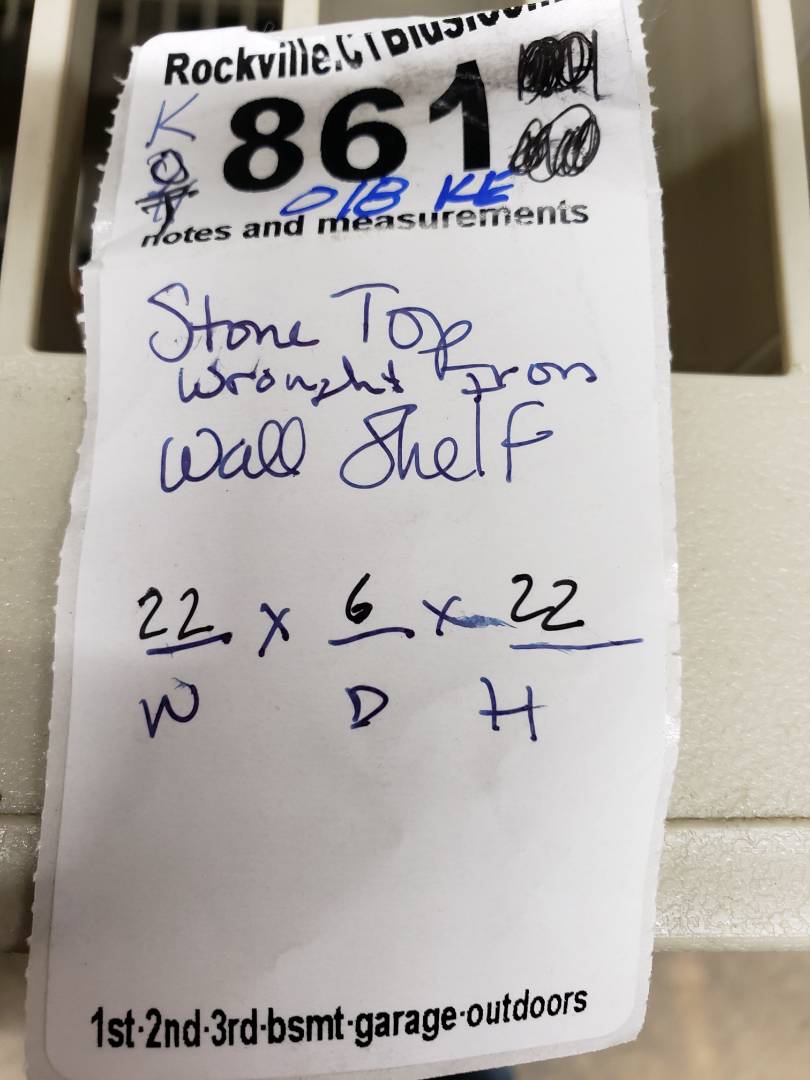 Rockville.CTBids.com
K
861
O/B KE
notes and measurements
Stone Top
Wrought Iron
Wall Shelf
22 x 6 x 22
W D H
1st·2nd·3rd·bsmt·garage·outdoors